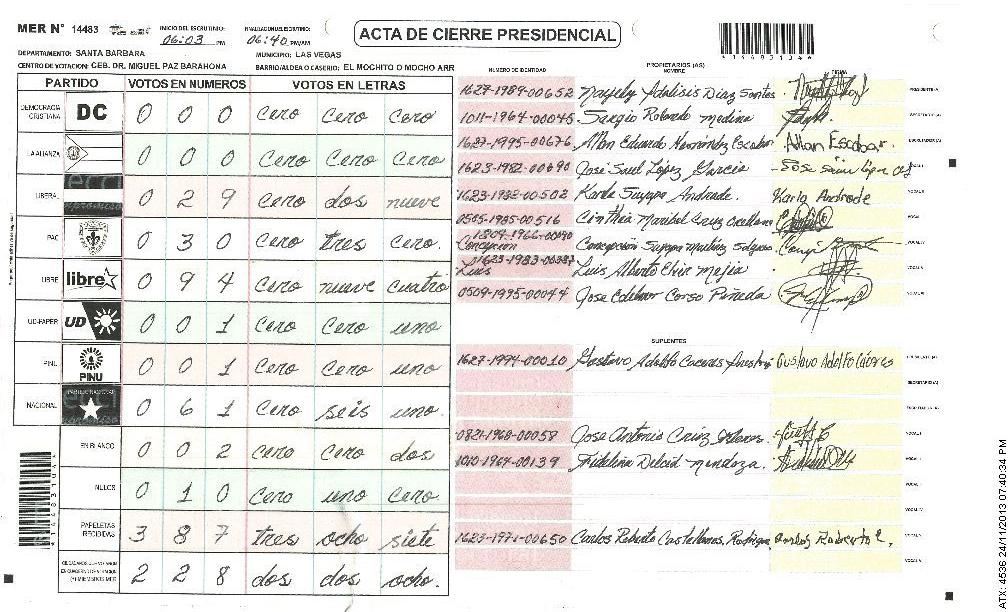 MER N° 14483
INICIO DEL ESCRUTINIO:
06:03 PM
06:40 PM/AM
ACTA DE CIERRE PRESIDENCIAL
DEPARTAMENTO: SANTA BARBARA
MUNICIPIO: LAS VEGAS
CENTRO DE VOTACION: CEB. DR. MIGUEL PAZ BARAHONA
BARRIO/ALDEA O CASERIO: EL MOCHITO O MOCHO ARR
PARTIDO VOTOS EN NUMEROS VOTOS EN LETRAS
DEMOCRACIA CRISTIANA DC 0 0 0 cero cero cero
LA ALIANZA 0 0 0 cero cero cero
LIBERAL 0 2 9 cero dos nueve
PAC 0 3 0 cero tres cero.
LIBRE libre 0 9 4 cero nueve cuatro
UD-FAPER UD 0 0 1 cero cero uno
PINU PINU 0 0 1 cero cero uno
NACIONAL 0 6 1 cero seis uno.
EN BLANCO 0 0 2 cero cero dos
NULOS 0 1 0 cero uno cero.
PAPELETAS RECIBIDAS 3 8 7 tres ocho siete
2 2 8 dos dos ocho.
NUMERO DE IDENTIDAD
PROPIETARIOS (AS)
NOMBRE
FIRMA
1627-1989-00652 Diaz Santos PRESIDENTE (A)
1011-1964-00045 Sergio Rolando Medina SECRETARIO (A)
1627-1995-00676 Allan Eduardo Hernández Escobar Allan Escobar. ESCRUTADOR (A)
1623-1982-00690 Jose Saul López Garcia VOCAL I
1623-1982-00502 Karla Suyapa Andrade. Karla Andrade VOCAL II
0505-1985-00516 Cinthia Maribel Cruz
Concepcion Concepcion Suyapa Martinez
Luis Luis Alberto Mejia
0509-1995-00044 Jose Corso Pineda
SUPLENTES
1627-1994-00010 Gustavo Adolfo Gustavo Adolfo PRESIDENTE (A)
SECRETARIO (A)
0821-1960-00058 Jose Antonio
1010-1964-00139 Fidelina Delcid Mendoza.
1623-1971-00650 Carlos Roberto Castellanos Carlos Roberto
ATX: 4536 24/11/2013 07:40:34 PM